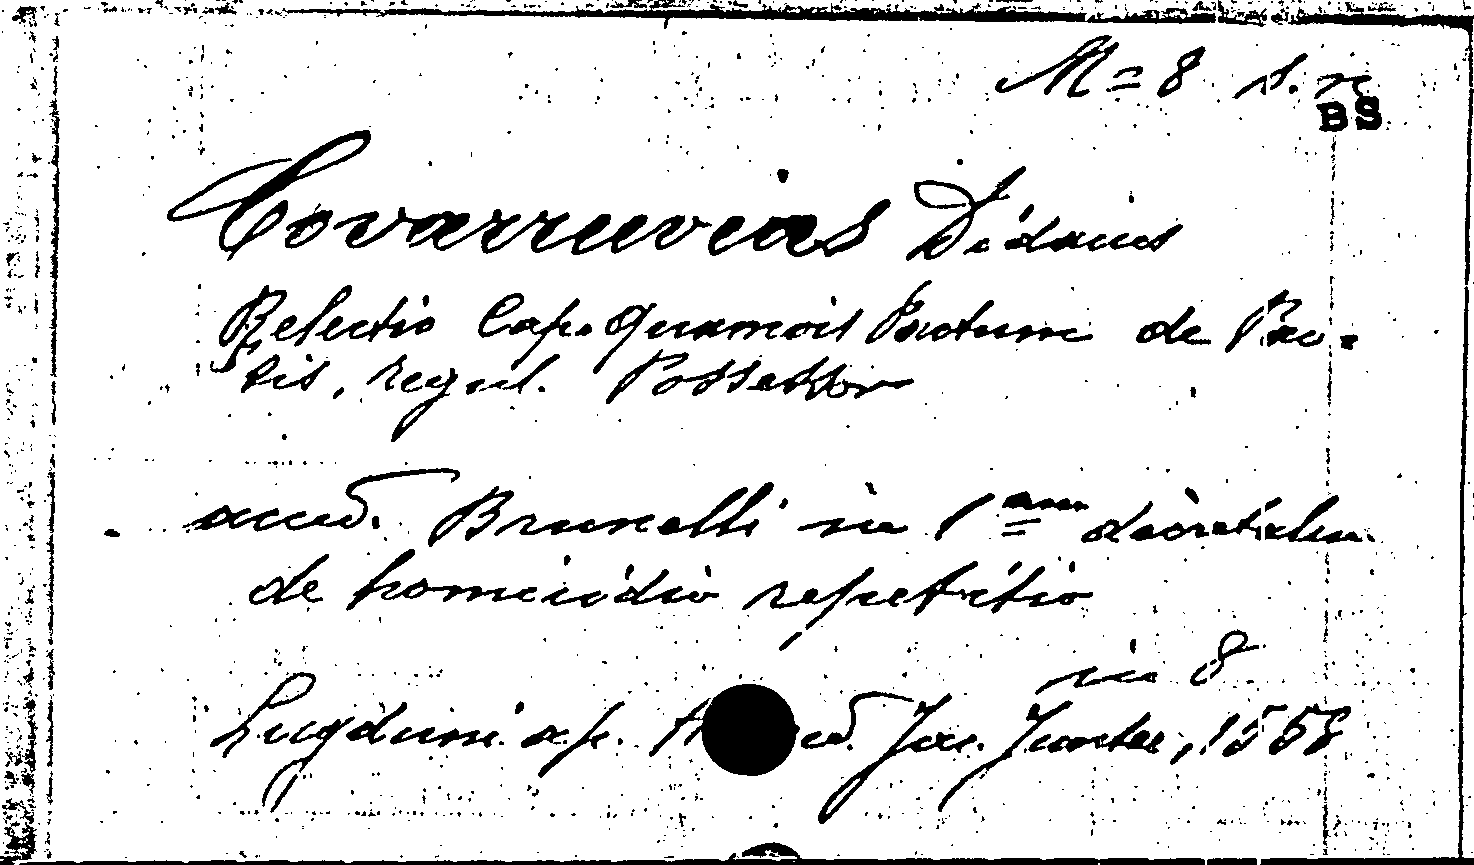 M=8 s. n
BS
Covarruvias Didacus
Relectio Cap. Quamvis Pactum de Pac-
tis, regul. Possessor
acced. Brunelli in 1am decretalem
de homicidio repetitio
in 8
Lugduni ap. ed. Jac. Juntae, 1558